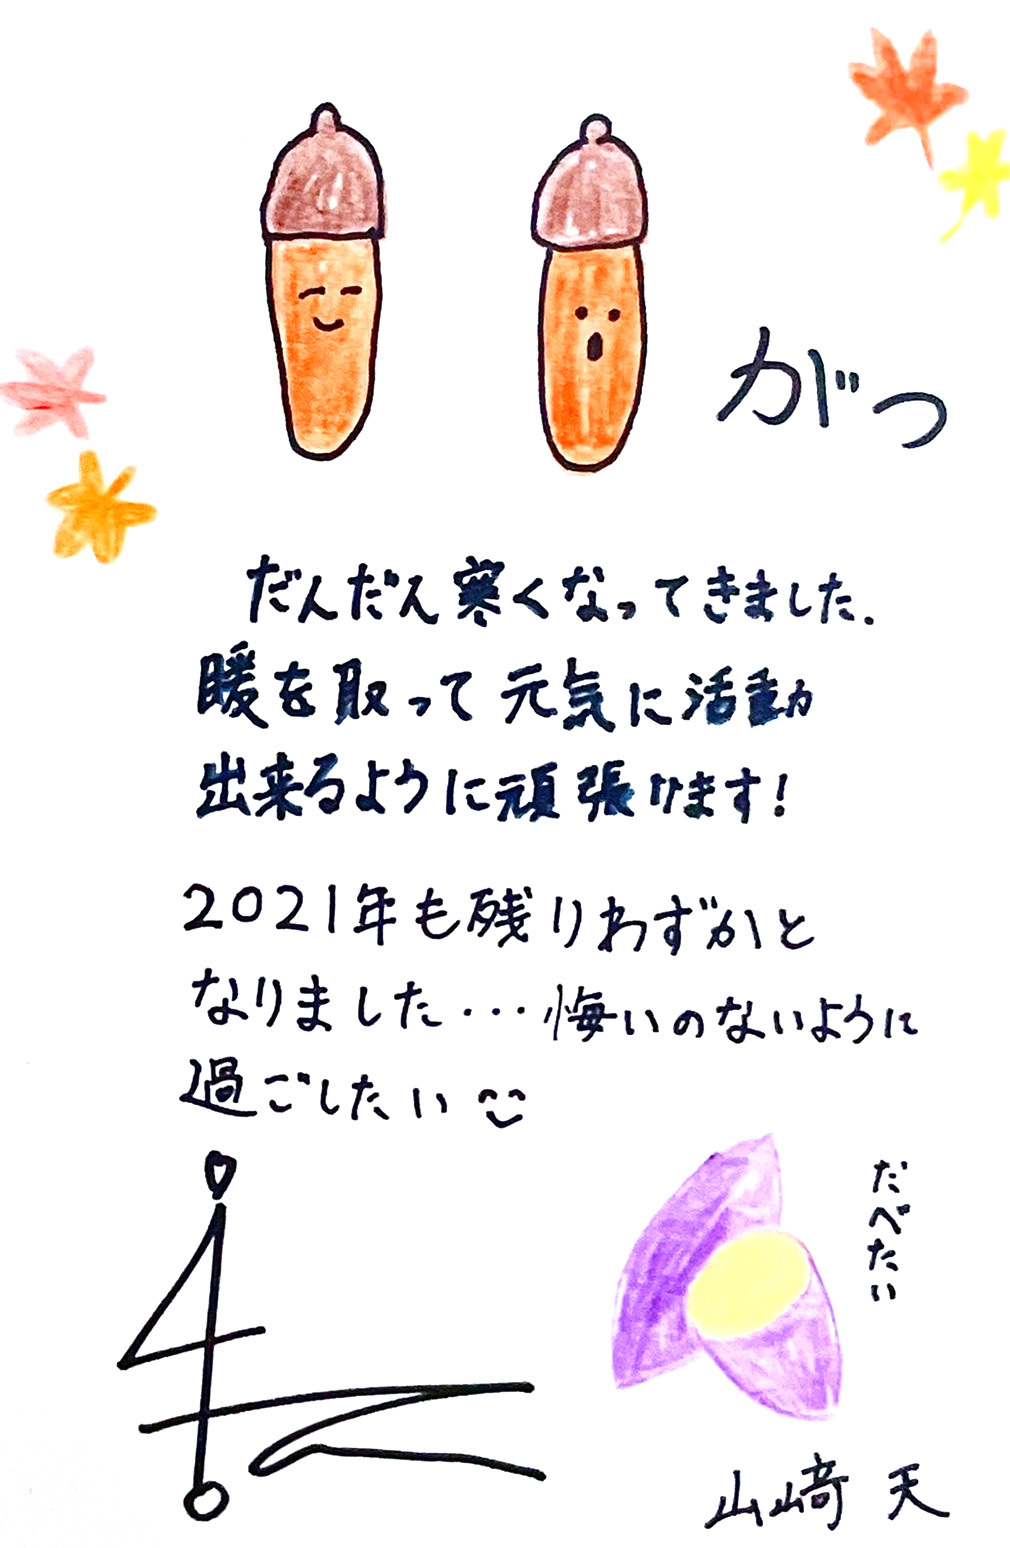 がつ
だんだん寒くなってきました.
暖を取って元気に活動
出来るように頑張ります!
2021年も残りわずかと
なりました...悔いのないように
過ごしたい
たべたい
山﨑 天